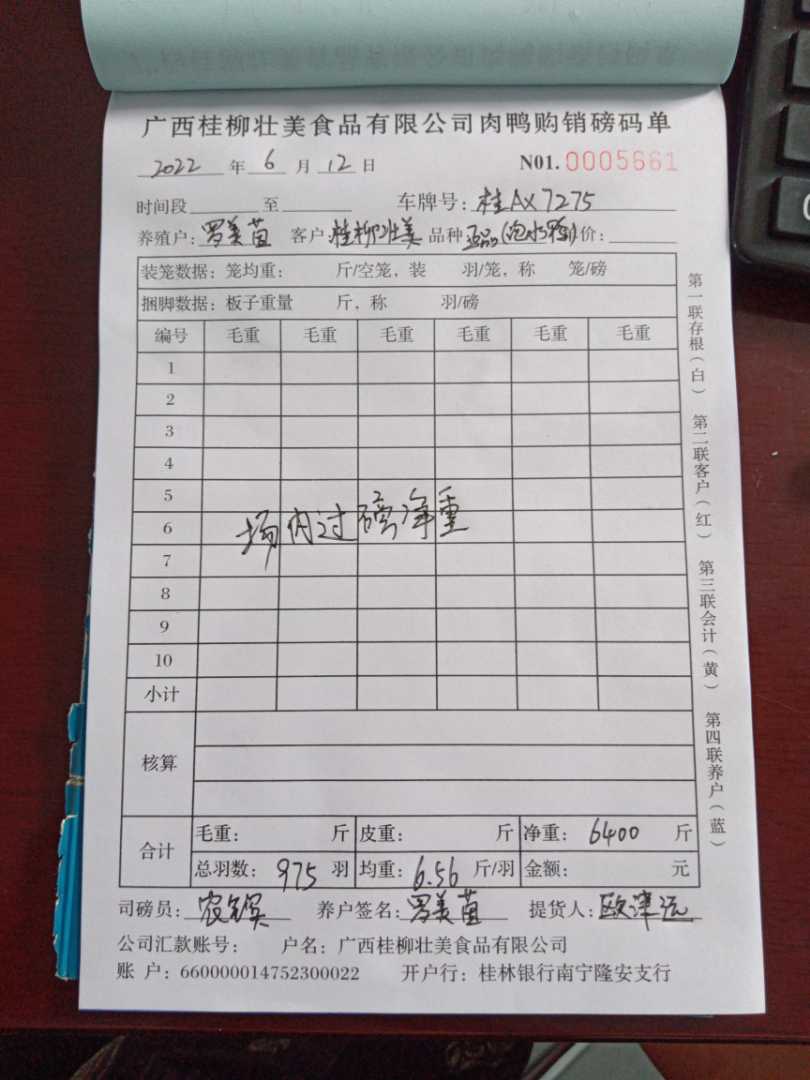 广西桂柳壮美食品有限公司肉鸭购销磅码单
2022 年 6 月 12 日 N01. 0005661
时间段 至 车牌号: 桂AX7275
养殖户: 罗美苗 客户: 桂柳壮美 品种 价:
装笼数据: 笼均重: 斤/空笼, 装 羽/笼, 称 笼/磅
捆脚数据: 板子重量 斤, 称 羽/磅
编号 毛重 毛重 毛重 毛重 毛重 毛重
1
2
3
4
5
6
7
8
9
10
场内过磅净重
小计
核算
合计 毛重: 斤 皮重: 斤 净重: 6400 斤
总羽数: 975 羽 均重: 6.56 斤/羽 金额: 元
司磅员: 养户签名: 罗美苗 提货人:
公司汇款账号: 户名: 广西桂柳壮美食品有限公司
账 户: 660000014752300022 开户行: 桂林银行南宁隆安支行
第一联存根(白) 第二联客户(红) 第三联会计(黄) 第四联养户(蓝)